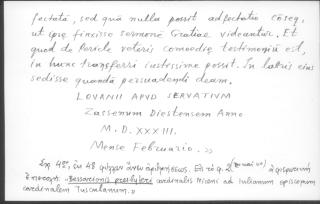 fectata, sed quā nulla possit adfectatio cōseq,
ut ipse finxisse sermonē Gratiae videantur. Et
quod de Pericle veteris comoediae testimoniū est,
in hunc transferri iustissime possit. In labris eius
sedisse quandā persuadendi deam.
LOVANII APVD SERVATIVM
Zassenum Diestensem Anno
M. D. XXXIII.
Mense Februario. »
Σχ. 4ον, ἐκ 48 φύλλων ἄνευ ἀριθμήσεως. Ἐν τῷ φ. 2
ἐπιστολή: «Bessarionis presbyteri cardinalis Niceni ad Iulianum episcopum
cardinalem Tusculanum.»